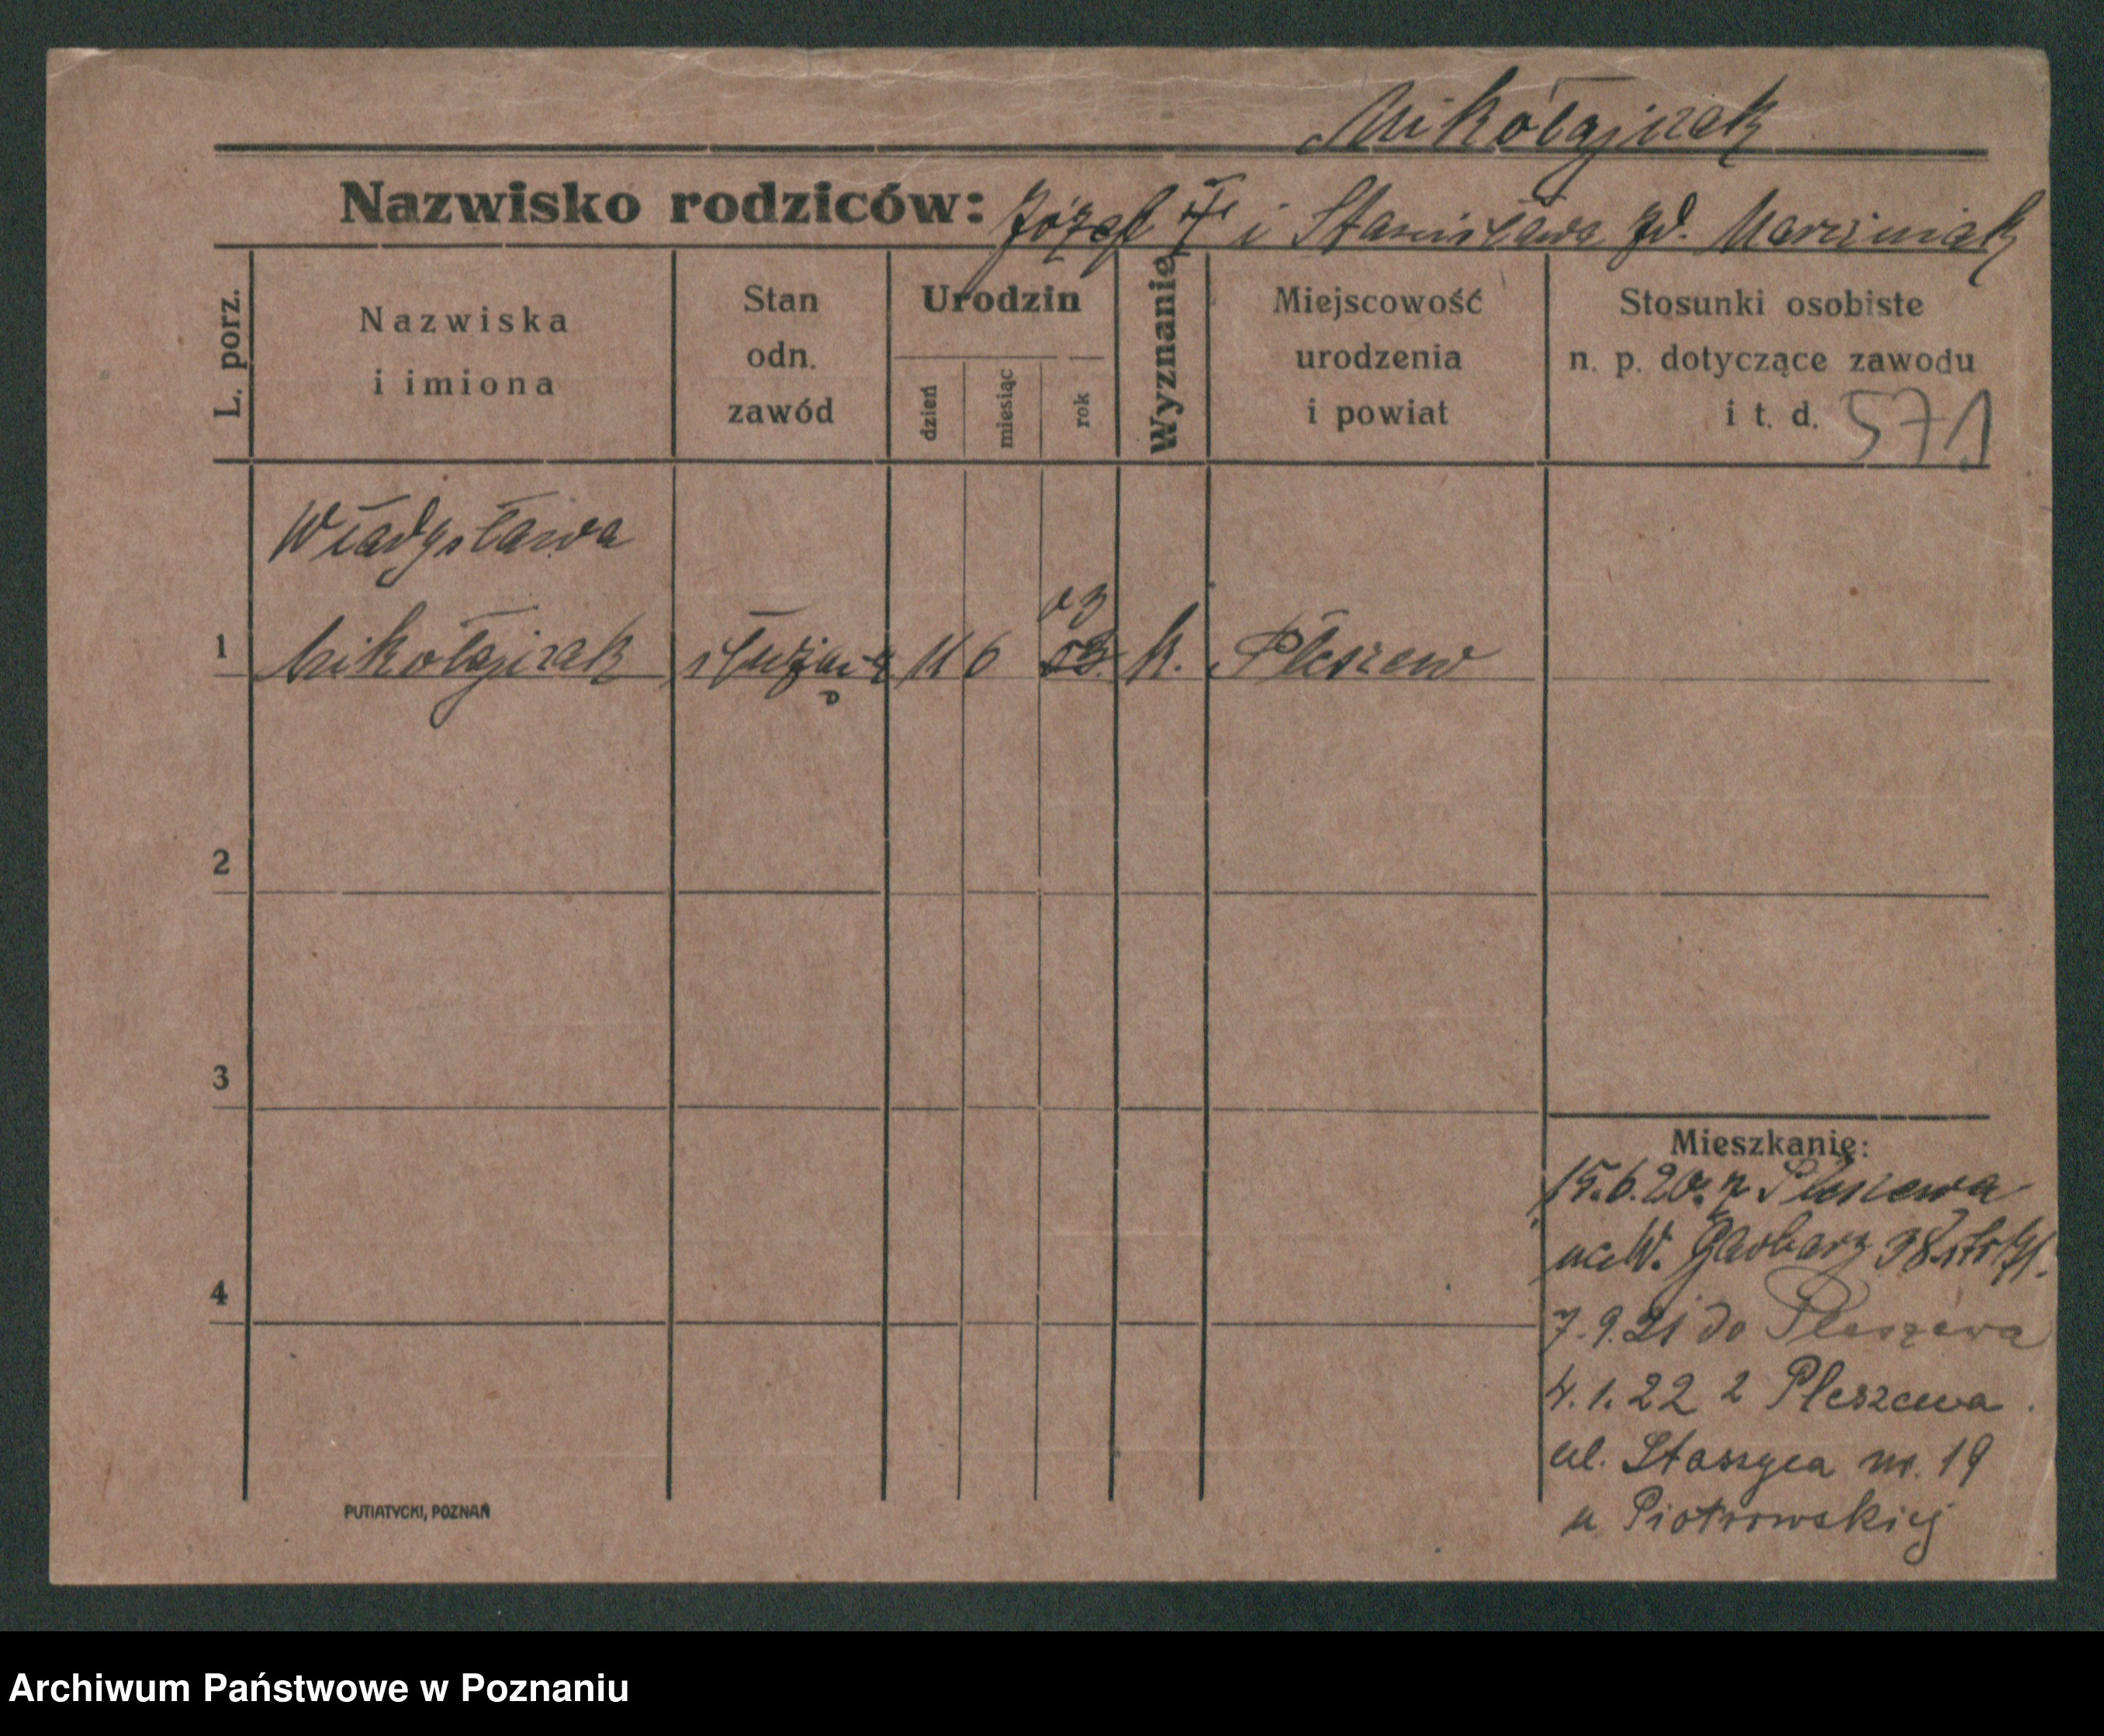 Mikołajczak
Nazwisko rodziców: Józef i Stanisława zd. Marciniak
L. porz.
Nazwiska
i imiona
Stan
odn.
zawód
Urodzin
dzień
miesiąc
rok
Wyznanie
Miejscowość
urodzenia
i powiat
Stosunki osobiste
n. p. dotyczące zawodu
i t. d. 571
Władysława
03
1 Mikołajczak służąca 11 6 03. k. Pleszew
2
3
4
Mieszkanie:
15.6.20. z Pleszewa
na W. Garbary 38
7.9.21 do Pleszewa
4.1.22 z Pleszewa
ul. Staszyca nr. 19
u Piotrowskiej
PUTIATYCKI, POZNAŃ
Archiwum Państwowe w Poznaniu